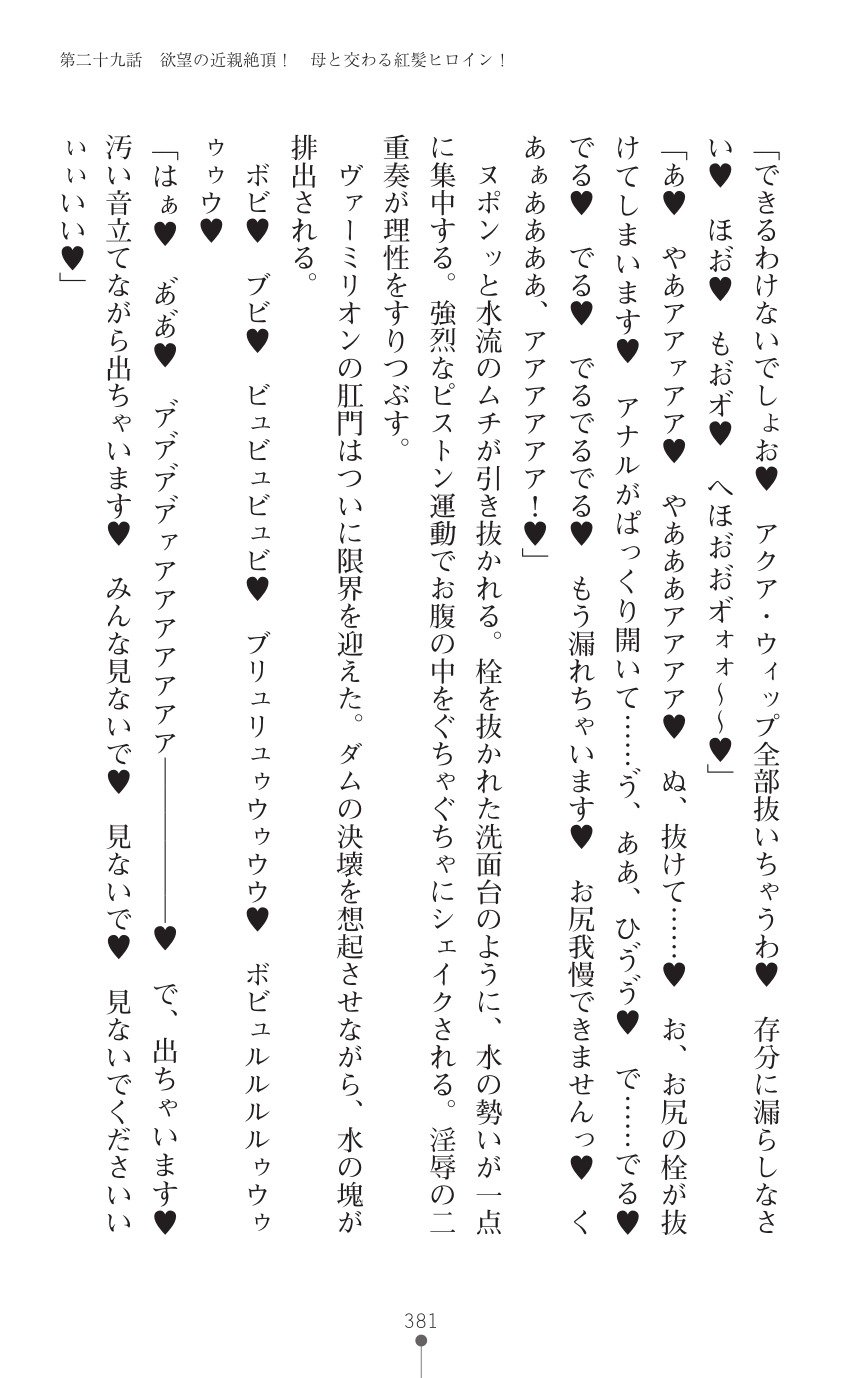 第二十九話　欲望の近親絶頂！　母と交わる紅髪ヒロイン！
「できるわけないでしょお♥　アクア・ウィップ全部抜いちゃうわ♥　存分に漏らしなさ
い♥　ほお゛♥　もお゛オ゛♥　へほお゛お゛オ゛ォォ～～♥」
「あ♥　やあアァアア♥　やあああアアアア♥　ぬ、抜けて……♥　お、お尻の栓が抜
けてしまいます♥　アナルがぱっくり開いて……う゛、ああ、ひう゛う゛♥　で……でる♥
でる♥　でる♥　でるでるでる♥　もう漏れちゃいます♥　お尻我慢できませんっ♥　く
あぁああああ、アアアアアア！♥」
ヌポンッと水流のムチが引き抜かれる。栓を抜かれた洗面台のように、水の勢いが一点
に集中する。強烈なピストン運動でお腹の中をぐちゃぐちゃにシェイクされる。淫辱の二
重奏が理性をすりつぶす。
ヴァーミリオンの肛門はついに限界を迎えた。ダムの決壊を想起させながら、水の塊が
排出される。
ボビ♥　ブビ♥　ビュビュビュビ♥　ブリュリュゥウゥウウ♥　ボビュルルルルゥウゥ
ゥゥウ♥
「はぁ♥　あ゛あ゛♥　ア゛ア゛ア゛ア゛ァアアアアアアア――――――♥　で、出ちゃいます♥
汚い音立てながら出ちゃいます♥　みんな見ないで♥　見ないで♥　見ないでくださいい
ぃぃいい♥」
381